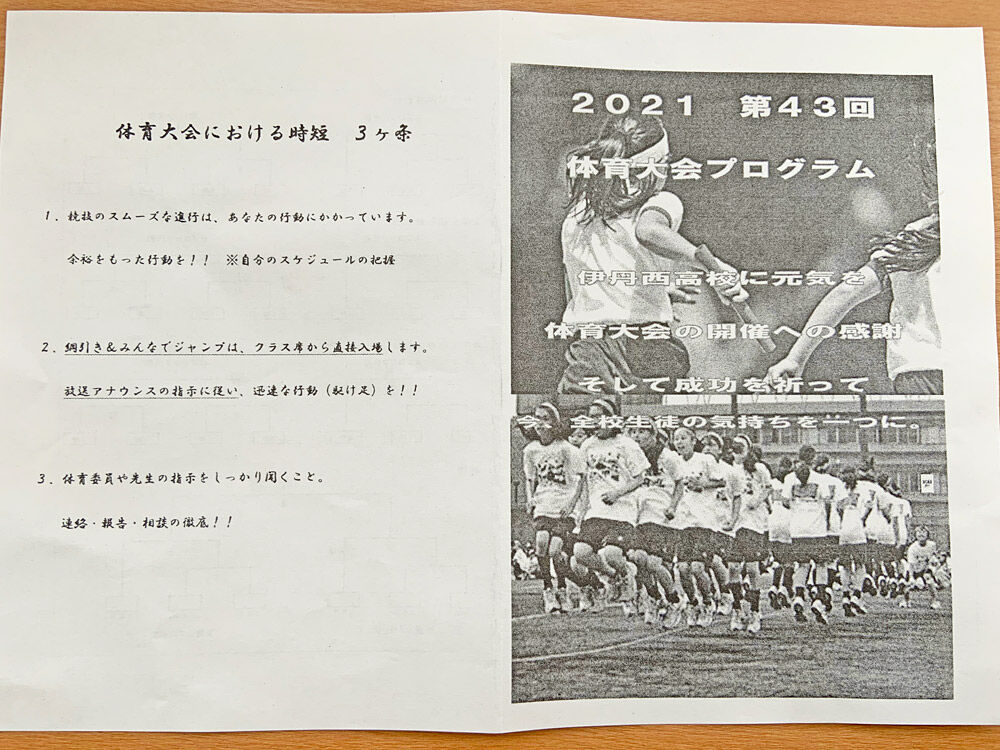 体育大会における時短　3ヶ条
1．競技のスムーズな進行は、あなたの行動にかかっています。
余裕をもった行動を！！　※自分のスケジュールの把握
2．綱引き＆みんなでジャンプは、クラス席から直接入場します。
放送アナウンスの指示に従い、迅速な行動（駆け足）を！！
3．体育委員や先生の指示をしっかり聞くこと。
連絡・報告・相談の徹底！！
２０２１　第４３回
体育大会プログラム
伊丹西高校に元気を
体育大会の開催への感謝
そして成功を祈って
今、全校生徒の気持ちを一つに。